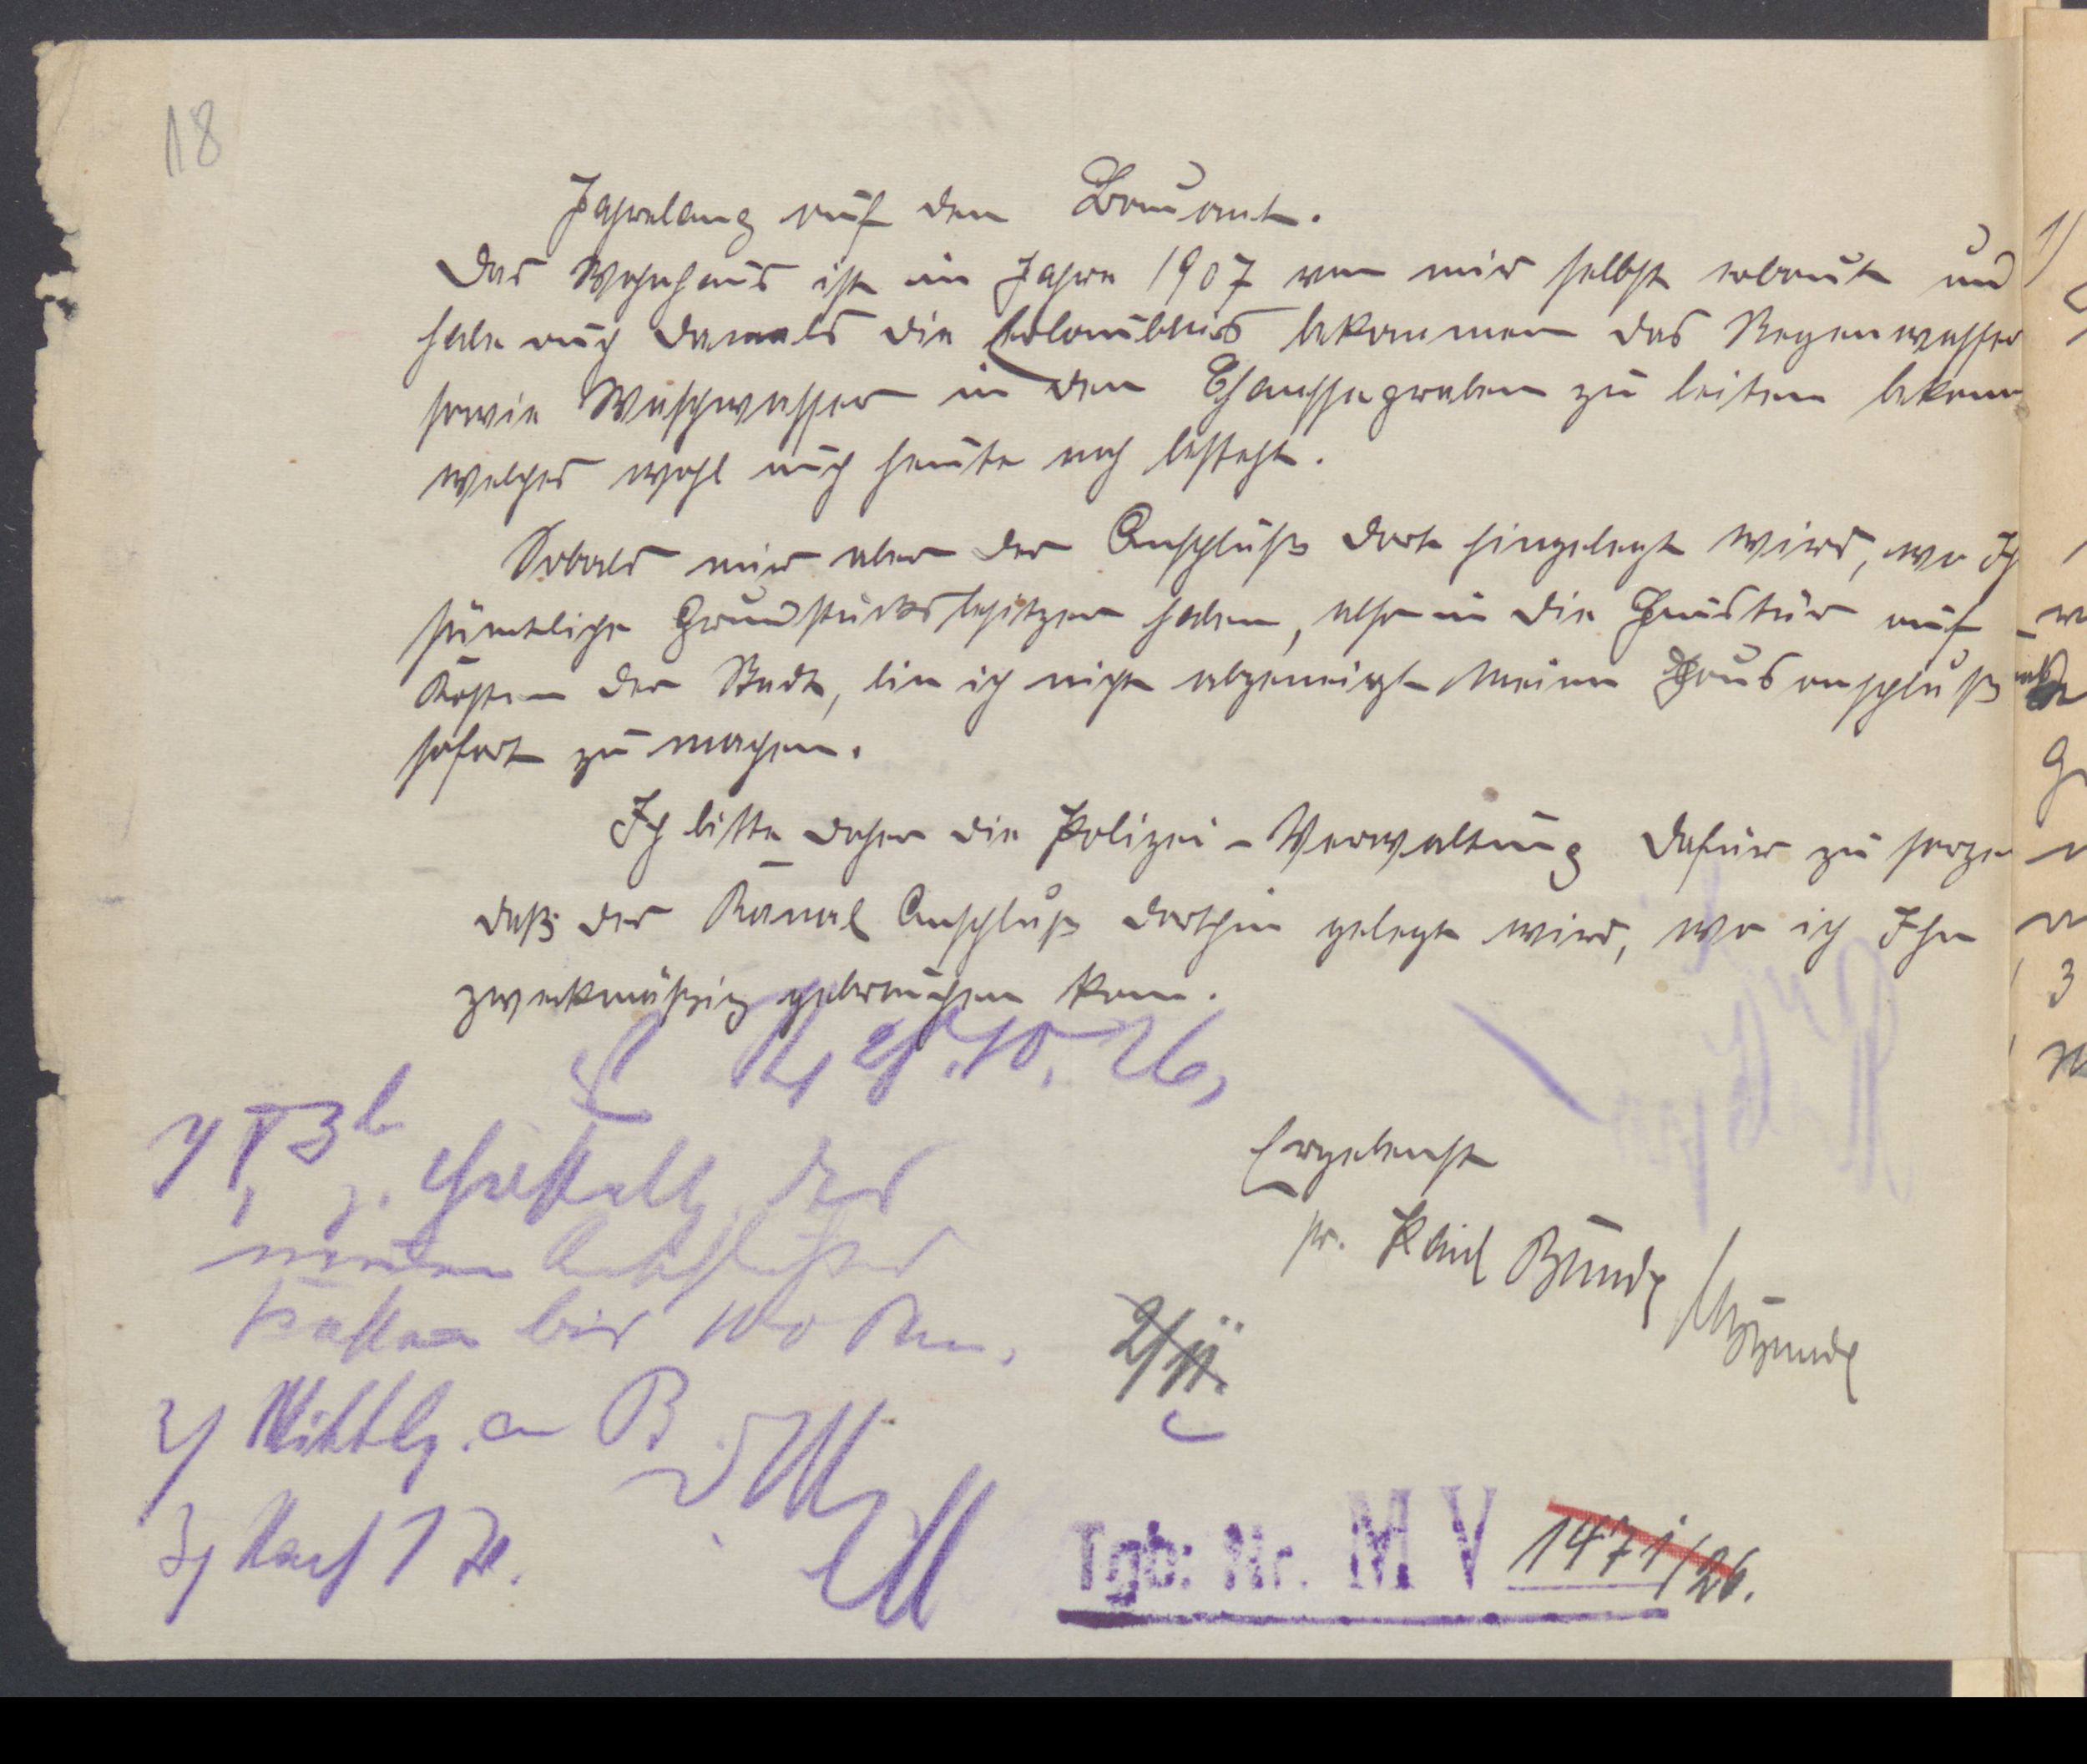 18
Jahrelang auf dem Bauamt.
Das Wohnhaus ist im Jahre 1907 von mir selbst erbaut und
habe auch damals die Erlaubnis bekommen das Regenwasser
sowie Waschwasser in den Chausseegraben zu leiten bekom
welches wohl auch heute noch besteht.
Sobald mir aber der Anschluß dort hingelegt wird, wo Ih
sämtliche Grundstücksbesitzer haben, also in die Haustür auf
Kosten der Stadt, bin ich nicht abgeneigt Meinen Hausanschluß
sofort zu machen.
Ich bitte daher die Polizei-Verwaltung dafür zu sorgen
daß der Kanal Anschluß dorthin gelegt wird, wo ich Ihn
zweckmäßig gebrauchen kann.
10. 26,
Ergebenst
pr. Paul
der
neuen
Kosten bis 100 Rm.
2/11.
2/ Mittlg. an B
3/ Nach 1 W.
Tgb: Nr. M V 1471/26.